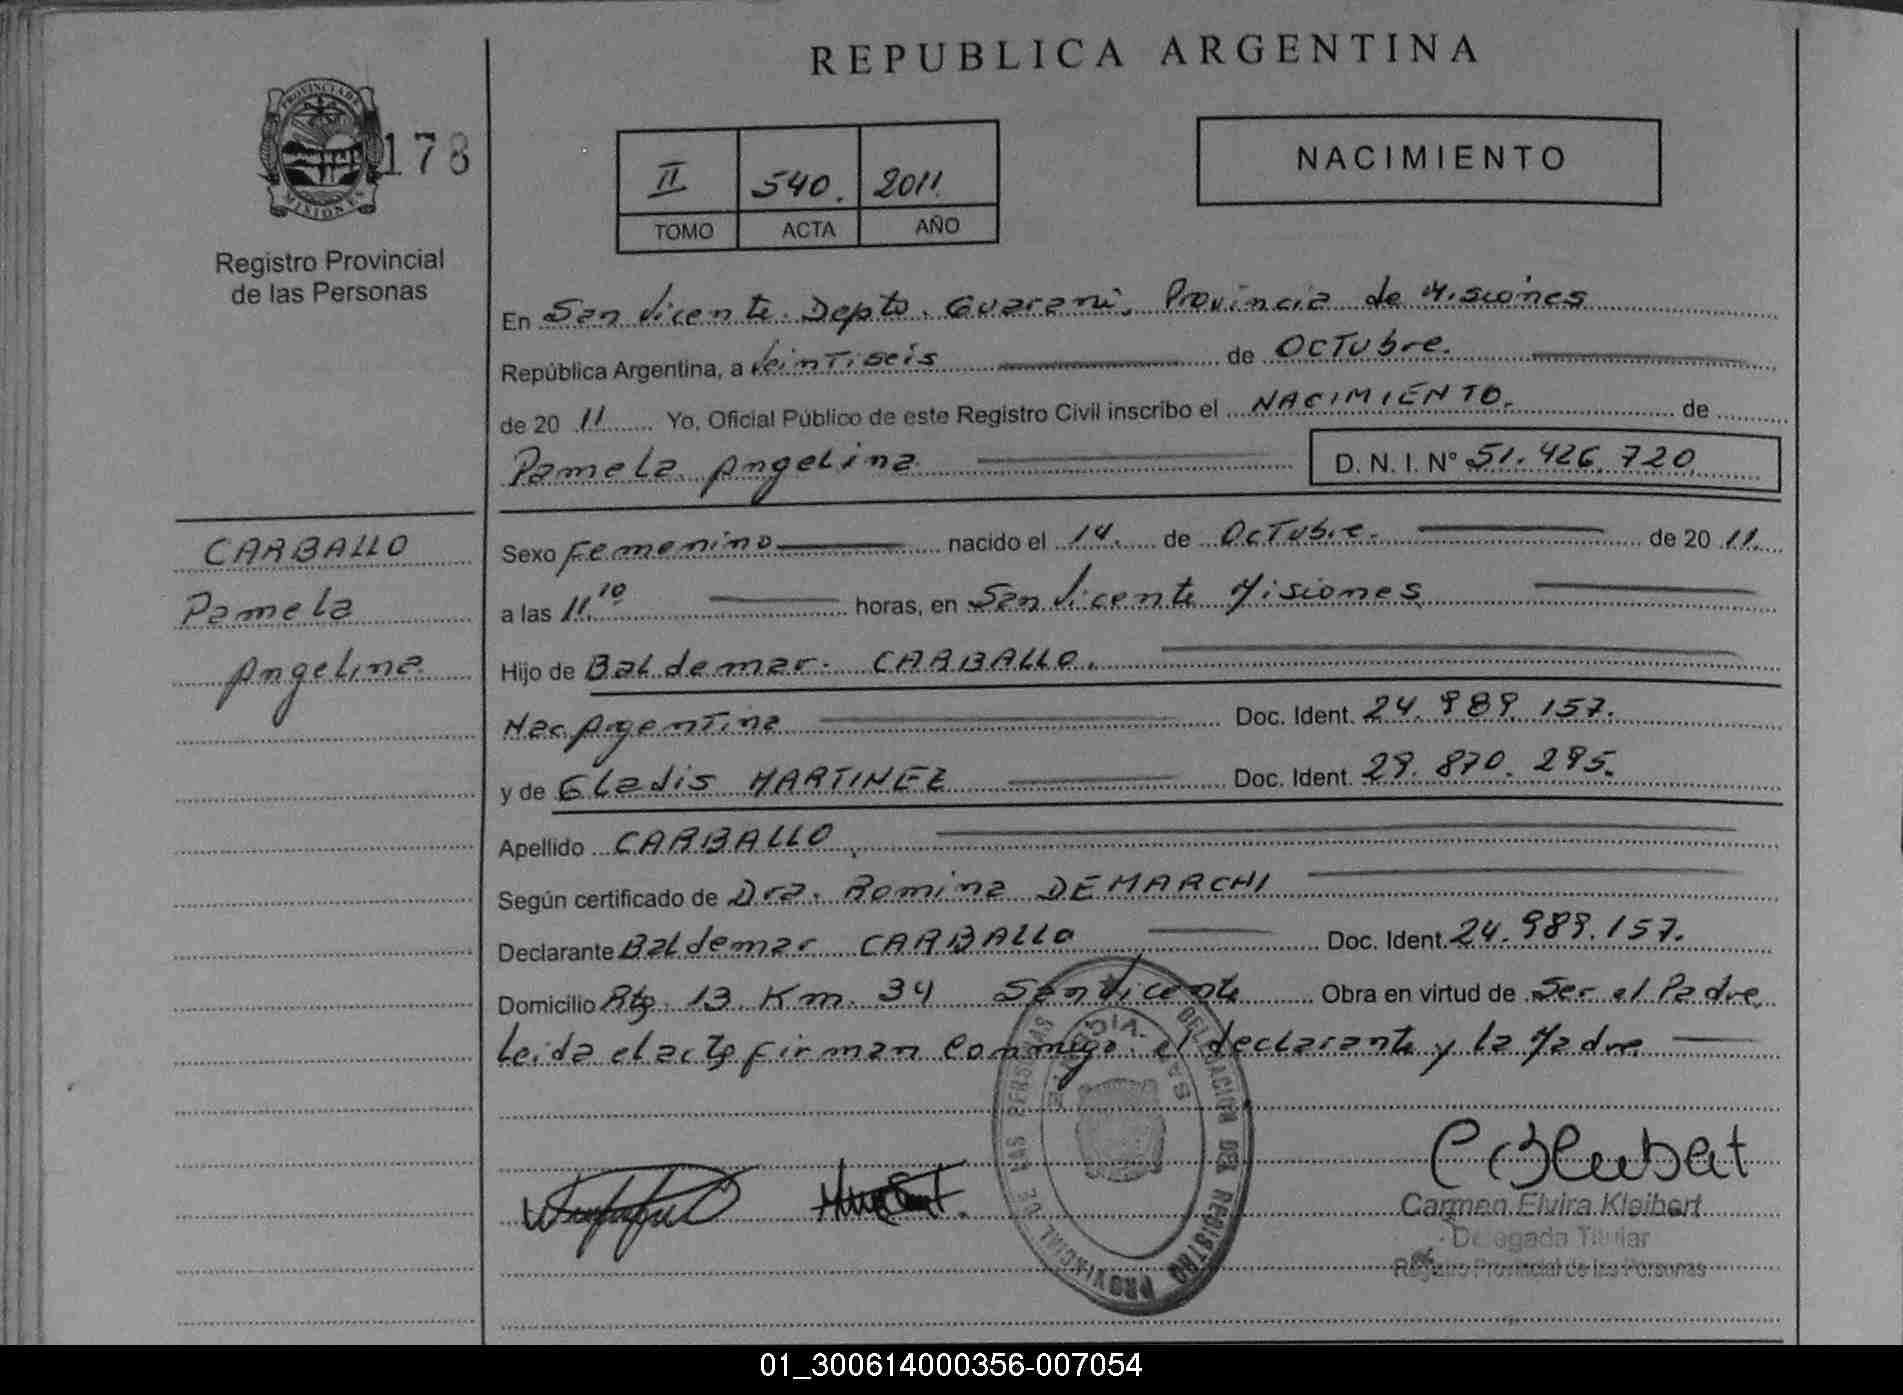 REPUBLICA ARGENTINA
PROVINCIA DE
MISIONES
178
Registro Provincial
de las Personas
II 540. 2011.
TOMO ACTA AÑO
NACIMIENTO
En San Vicente Depto. Guaraní, Provincia de Misiones
República Argentina, a Veintiseis de Octubre.
de 20 11 Yo, Oficial Público de este Registro Civil inscribo el NACIMIENTO. de
Pamela Angelina D. N. I. N° 51.426.720
CARBALLO
Pamela
Angelina
Sexo Femenino nacido el 14. de Octubre. de 20 11.
a las 11.10 horas, en San Vicente Misiones
Hijo de Baldemar. CARBALLO.
Nac. Argentina Doc. Ident. 24.989.157.
y de Gladis MARTINEZ Doc. Ident. 29.870.295.
Apellido CARBALLO,
Según certificado de Dra. Romina DEMARCHI
Declarante Baldemar CARBALLO Doc. Ident. 24.989.157.
Domicilio Rta. 13 Km. 34 San Vicente Obra en virtud de Ser el Padre,
Leida el acta firman conmigo el declarante y la Madre
DELEGACION DEL REGISTRO PROVINCIAL DE LAS PERSONAS
SAN VICENTE
Carmen Elvira Kleibert
Delegada Titular
Registro Provincial de las Personas
01_300614000356-007054